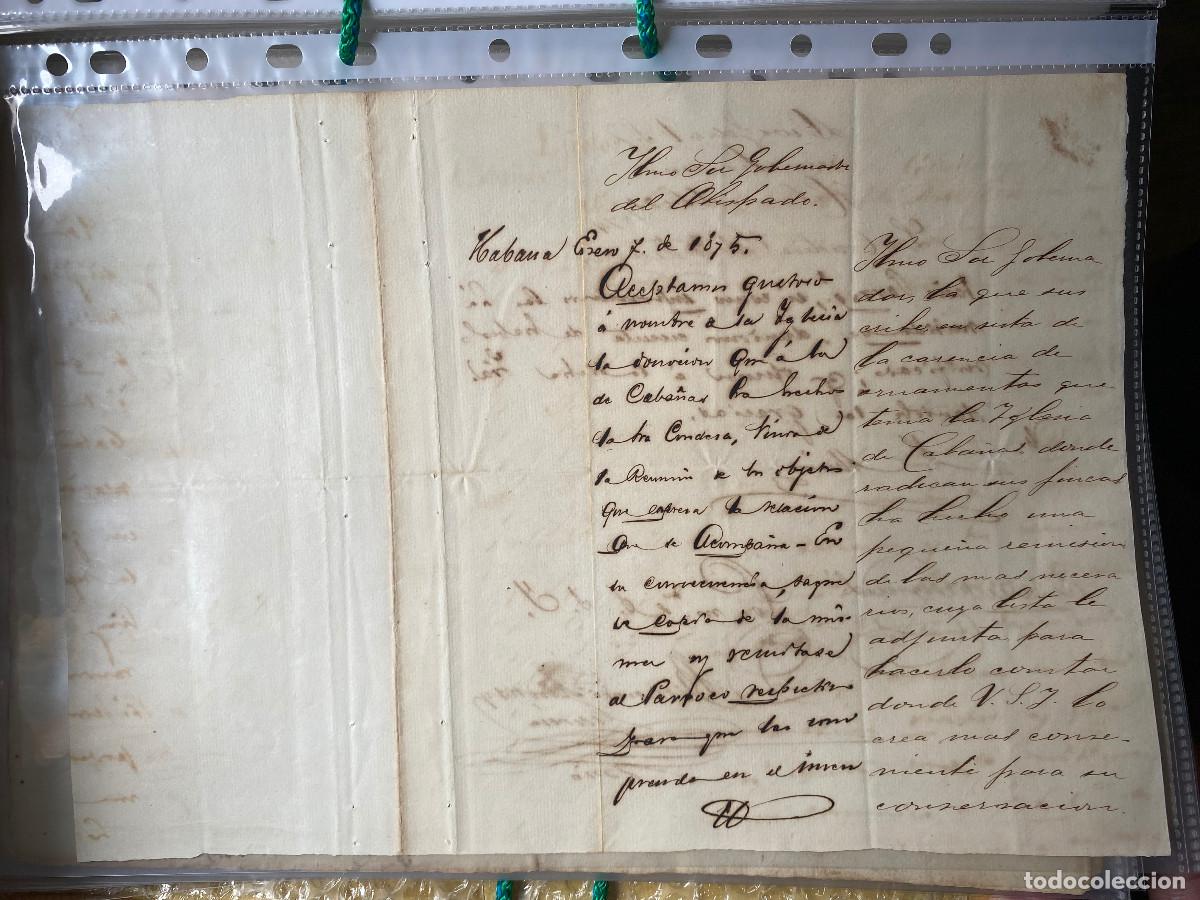 Ilmo Sor Gobernador
del Obispado.
Habana Enero 7. de 1875.
Aceptamos gustoso
á nombre de la Iglesia
la donacion que á la
de Cabañas ha hecho
la Sra Condesa, Viuda de
la Reunion de los objetos
que espresa la relacion
que se Acompaña - En
su consecuencia, saque
se copia de la mis
ma y remitase
al Parroco respectivo
para que los com
prenda en el inven
Ilmo Sor Goberna
dor, la que sus
cribe en vista de
la carencia de
ornamentos que
tenia la Iglesia
de Cabañas donde
radican sus fincas
ha hecho una
pequeña remision
de los mas necesa
rios, cuya lista le
adjunta para
hacerlo constar
donde V. S. I. lo
crea mas conve-
niente para su
conservacion.
todocoleccion